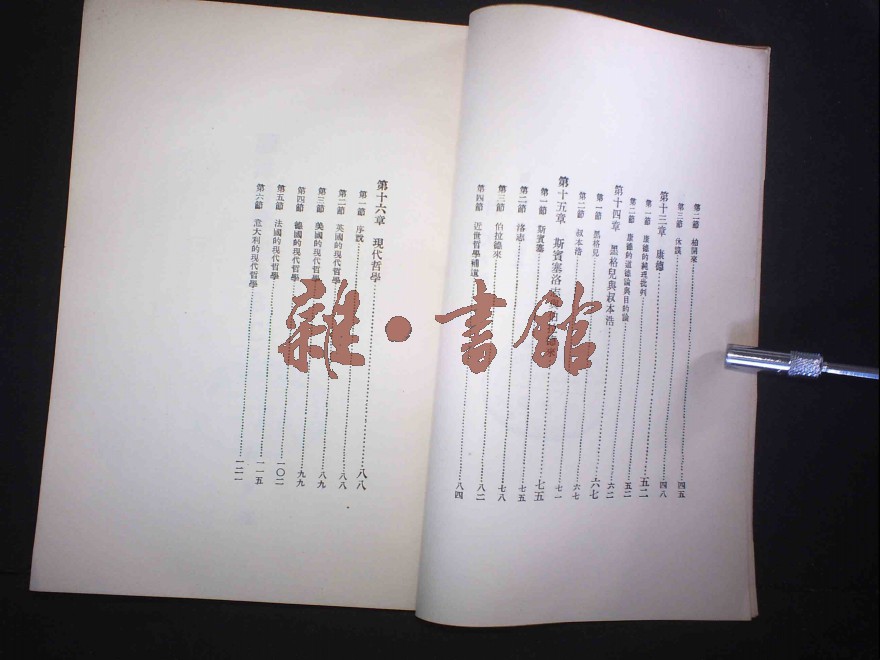 第二節 柏開來 四五
第三節 休謨 四八
第十三章 康德 五二
第一節 康德的純理批判 五二
第二節 康德的道德論與目的論 六二
第十四章 黑格兒與叔本浩 六七
第一節 黑格兒 六七
第二節 叔本浩 七一
第十五章 斯賓塞洛志 七五
第一節 斯賓塞 七五
第二節 洛志 七八
第三節 伯拉德來 八二
第四節 近世哲學補遺 八四
第十六章 現代哲學 八八
第一節 序說 八八
第二節 英國的現代哲學 八九
第三節 美國的現代哲學 九九
第四節 德國的現代哲學 一〇二
第五節 法國的現代哲學 一一五
第六節 意大利的現代哲學 一二一
雜·書館